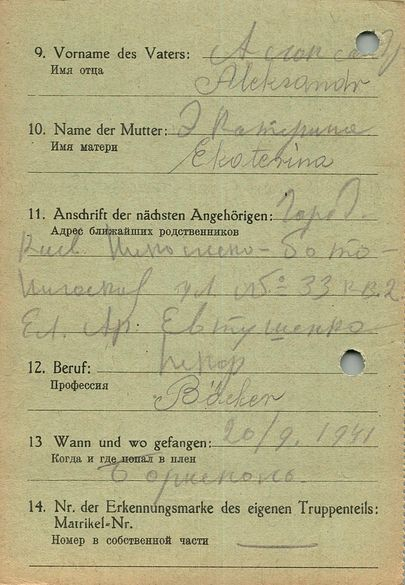 9. Vorname des Vaters: Александр
Имя отца
Aleksandr
10. Name der Mutter: Экатерина
Имя матери
Ekaterina
11. Anschrift der nächsten Angehörigen: Город.
Адрес ближайших родственников
Киев
ул. № 33 кв. 2
Евтушенко
12. Beruf: пекор
Профессия
Bäcker
13 Wann und wo gefangen: 20/9. 1941
Когда и где попал в плен
14. Nr. der Erkennungsmarke des eigenen Truppenteils:
Matrikel-Nr.
Номер в собственной части